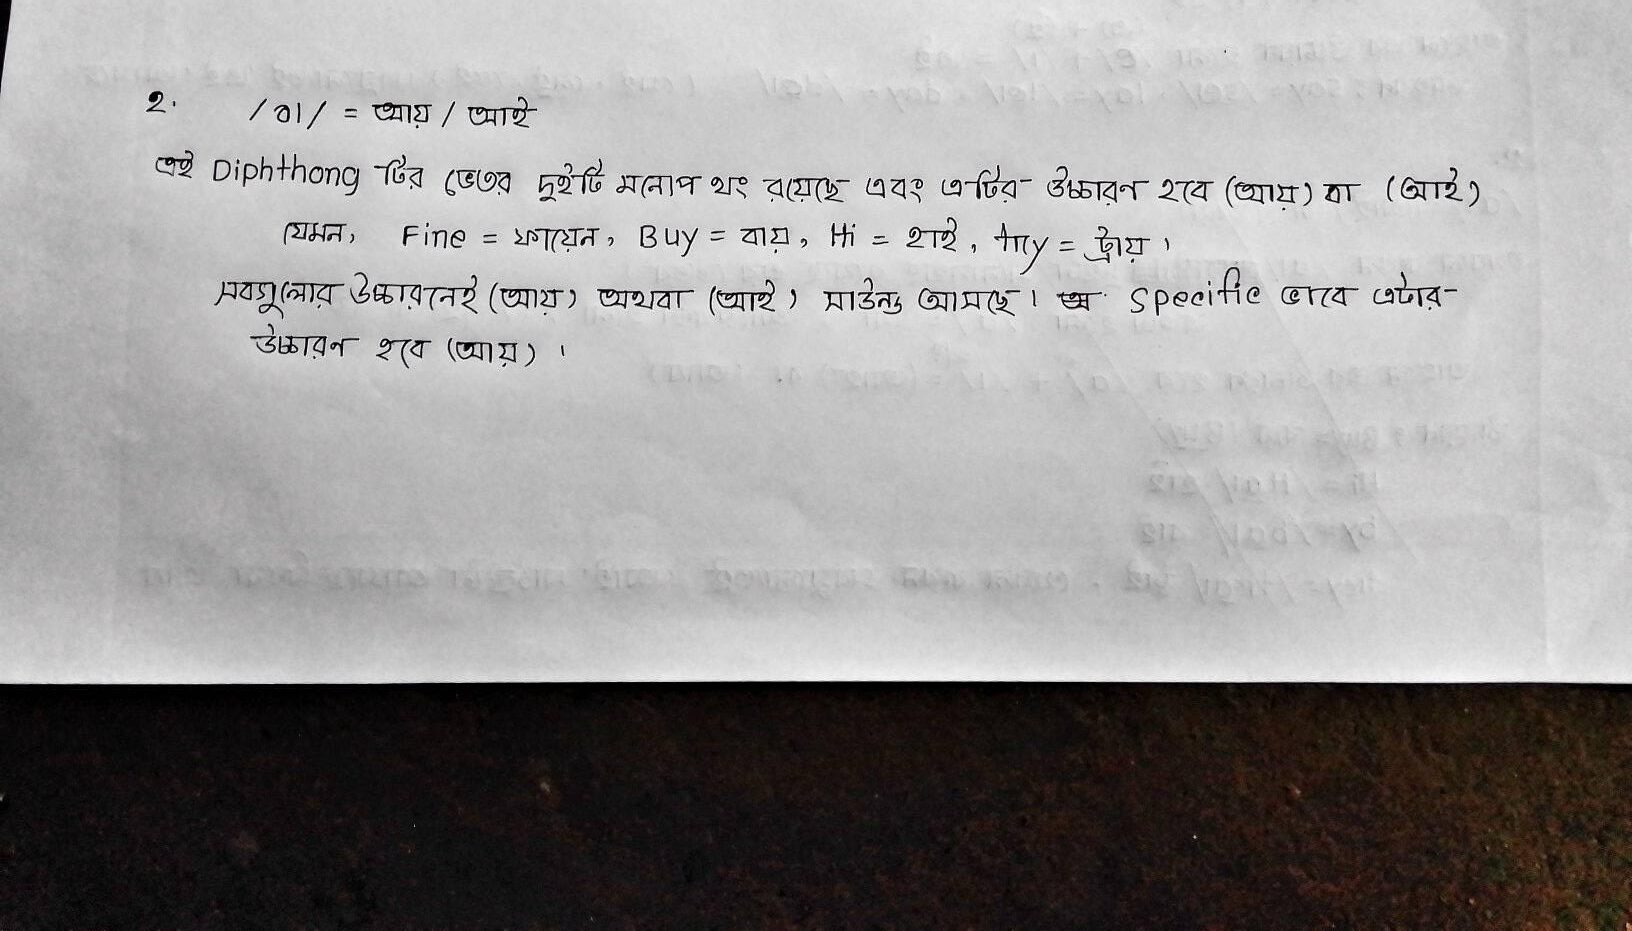 ২. /aI/ = আয় / আই
এই Diphthong টির ভেতর দুইটি মনোপ থং রয়েছে এবং এটির উচ্চারণ হবে (আয়) বা (আই)
যেমন, Fine = ফায়েন, Buy = বায়, Hi = হাই, try = ট্রায়।
সবগুলোর উচ্চারনেই (আয়) অথবা (আই) সাউন্ড আসছে। Specific ভাবে এটার
উচ্চারন হবে (আয়)।